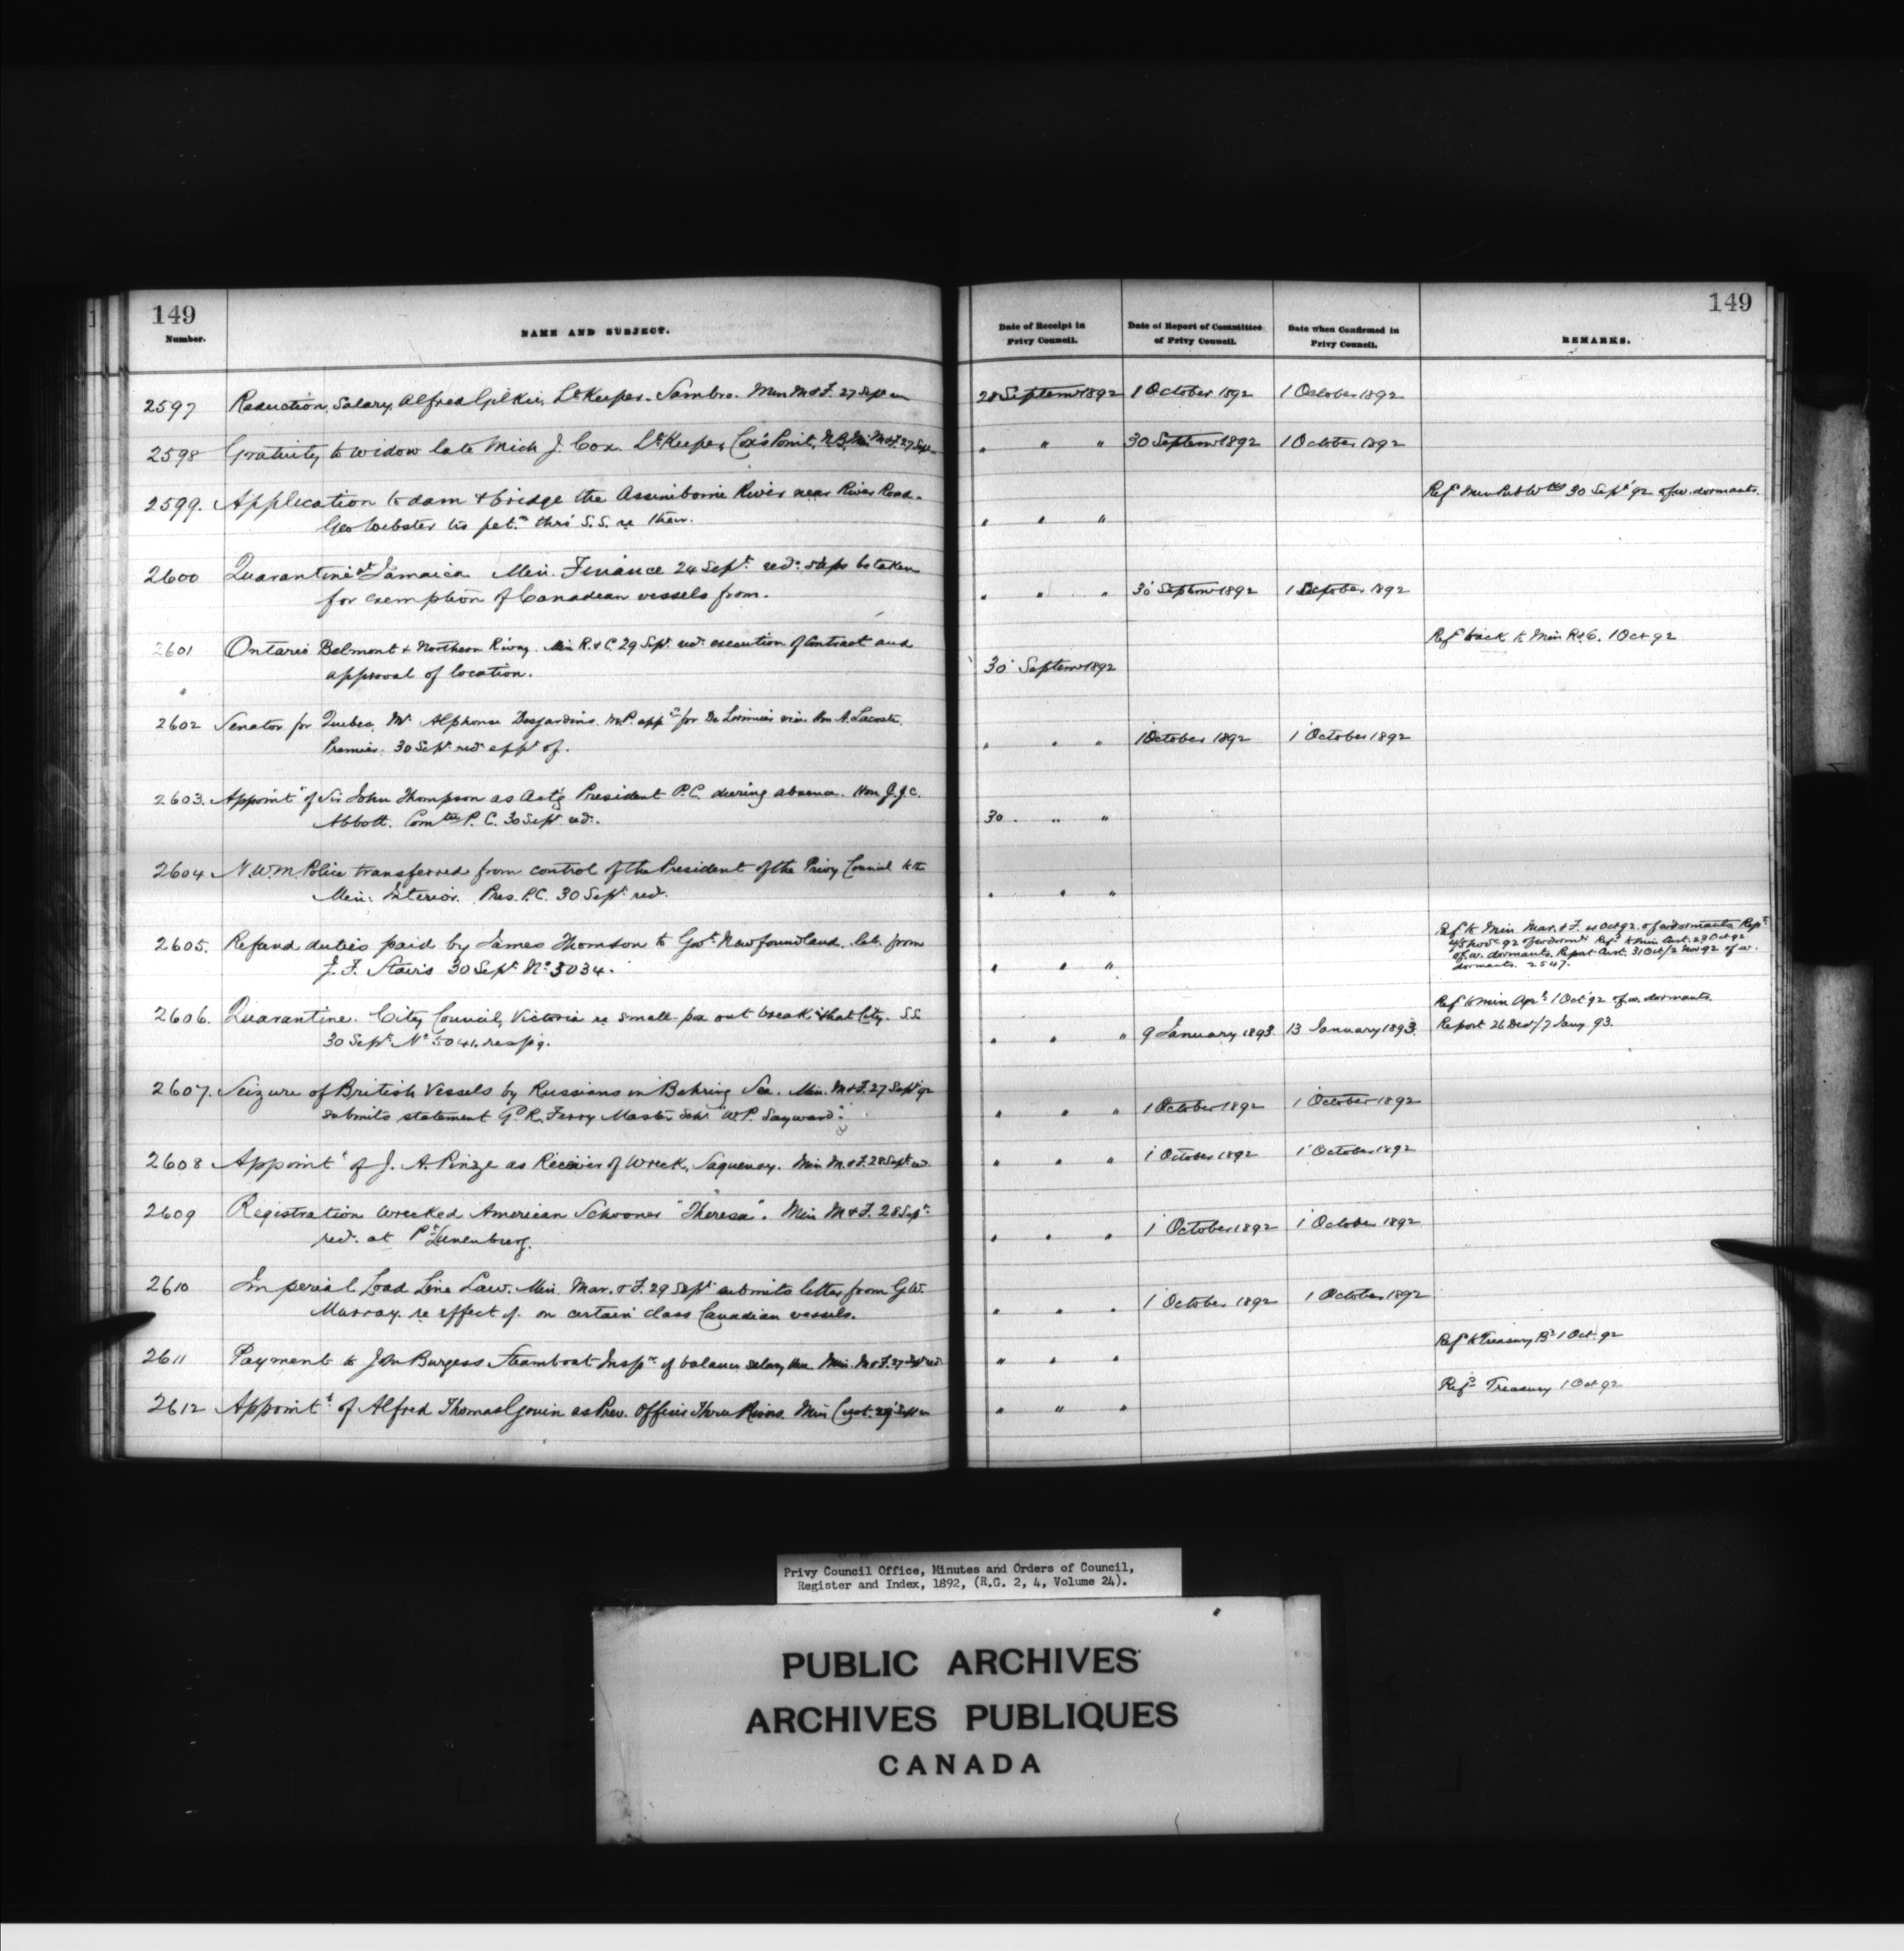 149
149
Number.
NAME AND SUBJECT.
Date of Receipt in Privy Council.
Date of Report of Committee of Privy Council.
Date when Confirmed in Privy Council.
REMARKS.
2597 Reduction, Salary, Alfred Gilkie, Lt Keeper. Sambro. Min M & F. 27 Sept 28 Septemr 1892 1 October 1892 1 October 1892
2598 Gratuity to widow late Mich J. Cox. Lt Keeper, Cox's Point, N.B. Min M & F. 27 Sept " " " 30 Septemr 1892 1 October 1892
2599. Application to dam & bridge the Assiniboine River near River Road. Refd Min Pub Wks 30 Sept 92 of w. dormants.
Geo Webster his petn. thro' S.S. re " " "
2600 Quarantine at Jamaica Min. Finance 24 Sept. recd. steps be taken
for exemption of Canadian vessels from. " " " 30 Septemr 1892 1 October 1892
2601 Ontario Belmont & Northern Riway. Min R. & C. 29 Sept. recd. execution of Contract and Refd back to Min R & C. 1 Oct 92
approval of location. 30 Septemr 1892
2602 Senator for Quebec, Mr. Alphonse Desjardins. M.P. appd for De Lorimier vice Hon A. Lacoste.
Premier. 30 Sept. recd. appt of. " " " 1 October 1892 1 October 1892
2603. Appointt of Sir John Thompson as Act'g President P.C. during absence. Hon J.J.C.
Abbott. Comtee P.C. 30 Sept recd. 30 " "
2604 N.W.M. Police transferred from control of the President of the Privy Council to the
Min. Interior. Pres. P.C. 30 Sept. recd. " " "
2605. Refund duties paid by James Thomson to Govt. Newfoundland. let. from
J. F. Stairs 30 Sept. No 3034. " " "
Refd to Min Mar. & F. 4 Oct 92. of w dormants Rept
4/5 Nov. 92 of w dormts Refd to Min Cust. 29 Oct 92
of w. dormants. Report Cust. 31 Oct/2 Nov 92 of w.
dormants. 2547.
2606. Quarantine. City Council, Victoria re small-pox out break that City. S.S. Refd to Min Agre 1 Oct 92 of w. dormants.
30 Sept. No 5041. respg. " " " 9 January 1893. 13 January 1893. Report 26 Dec/7 Jany 93.
2607. Seizure of British Vessels by Russians in Behring Sea. Min. M & F. 27 Sept 92
submits statement G. R. Ferry Master Schr "W.P. Sayward". " " " 1 October 1892 1 October 1892
2608 Appointt of J. A. Pinze as Receiver of Wreck, Saguenay. Min M. & F. 28 Sept recd. " " " 1 October 1892 1 October 1892
2609 Registration Wrecked American Schooner "Theresa". Min M & F. 28 Sept.
recd. at Pt Lunenburg. " " " 1 October 1892 1 October 1892
2610 Imperial Load Line Law. Min. Mar. & F. 29 Sept. submits letter from G.W.
Murray. re effect of on certain class Canadian vessels. " " " 1 October 1892 1 October 1892
2611 Payment to John Burgess Steamboat Inspr. of balance salary due. Min. M & F. 27 Sept recd. " " " Refd to Treasury Bd 1 Oct. 92
2612 Appointt of Alfred Thomas Gouin as Prev. Officer Three Rivers. Min Cust. 29 Sept " " " Refd Treasury 1 Oct 92
Privy Council Office, Minutes and Orders of Council,
Register and Index, 1892, (R.G. 2, 4, Volume 24).
PUBLIC ARCHIVES
ARCHIVES PUBLIQUES
CANADA